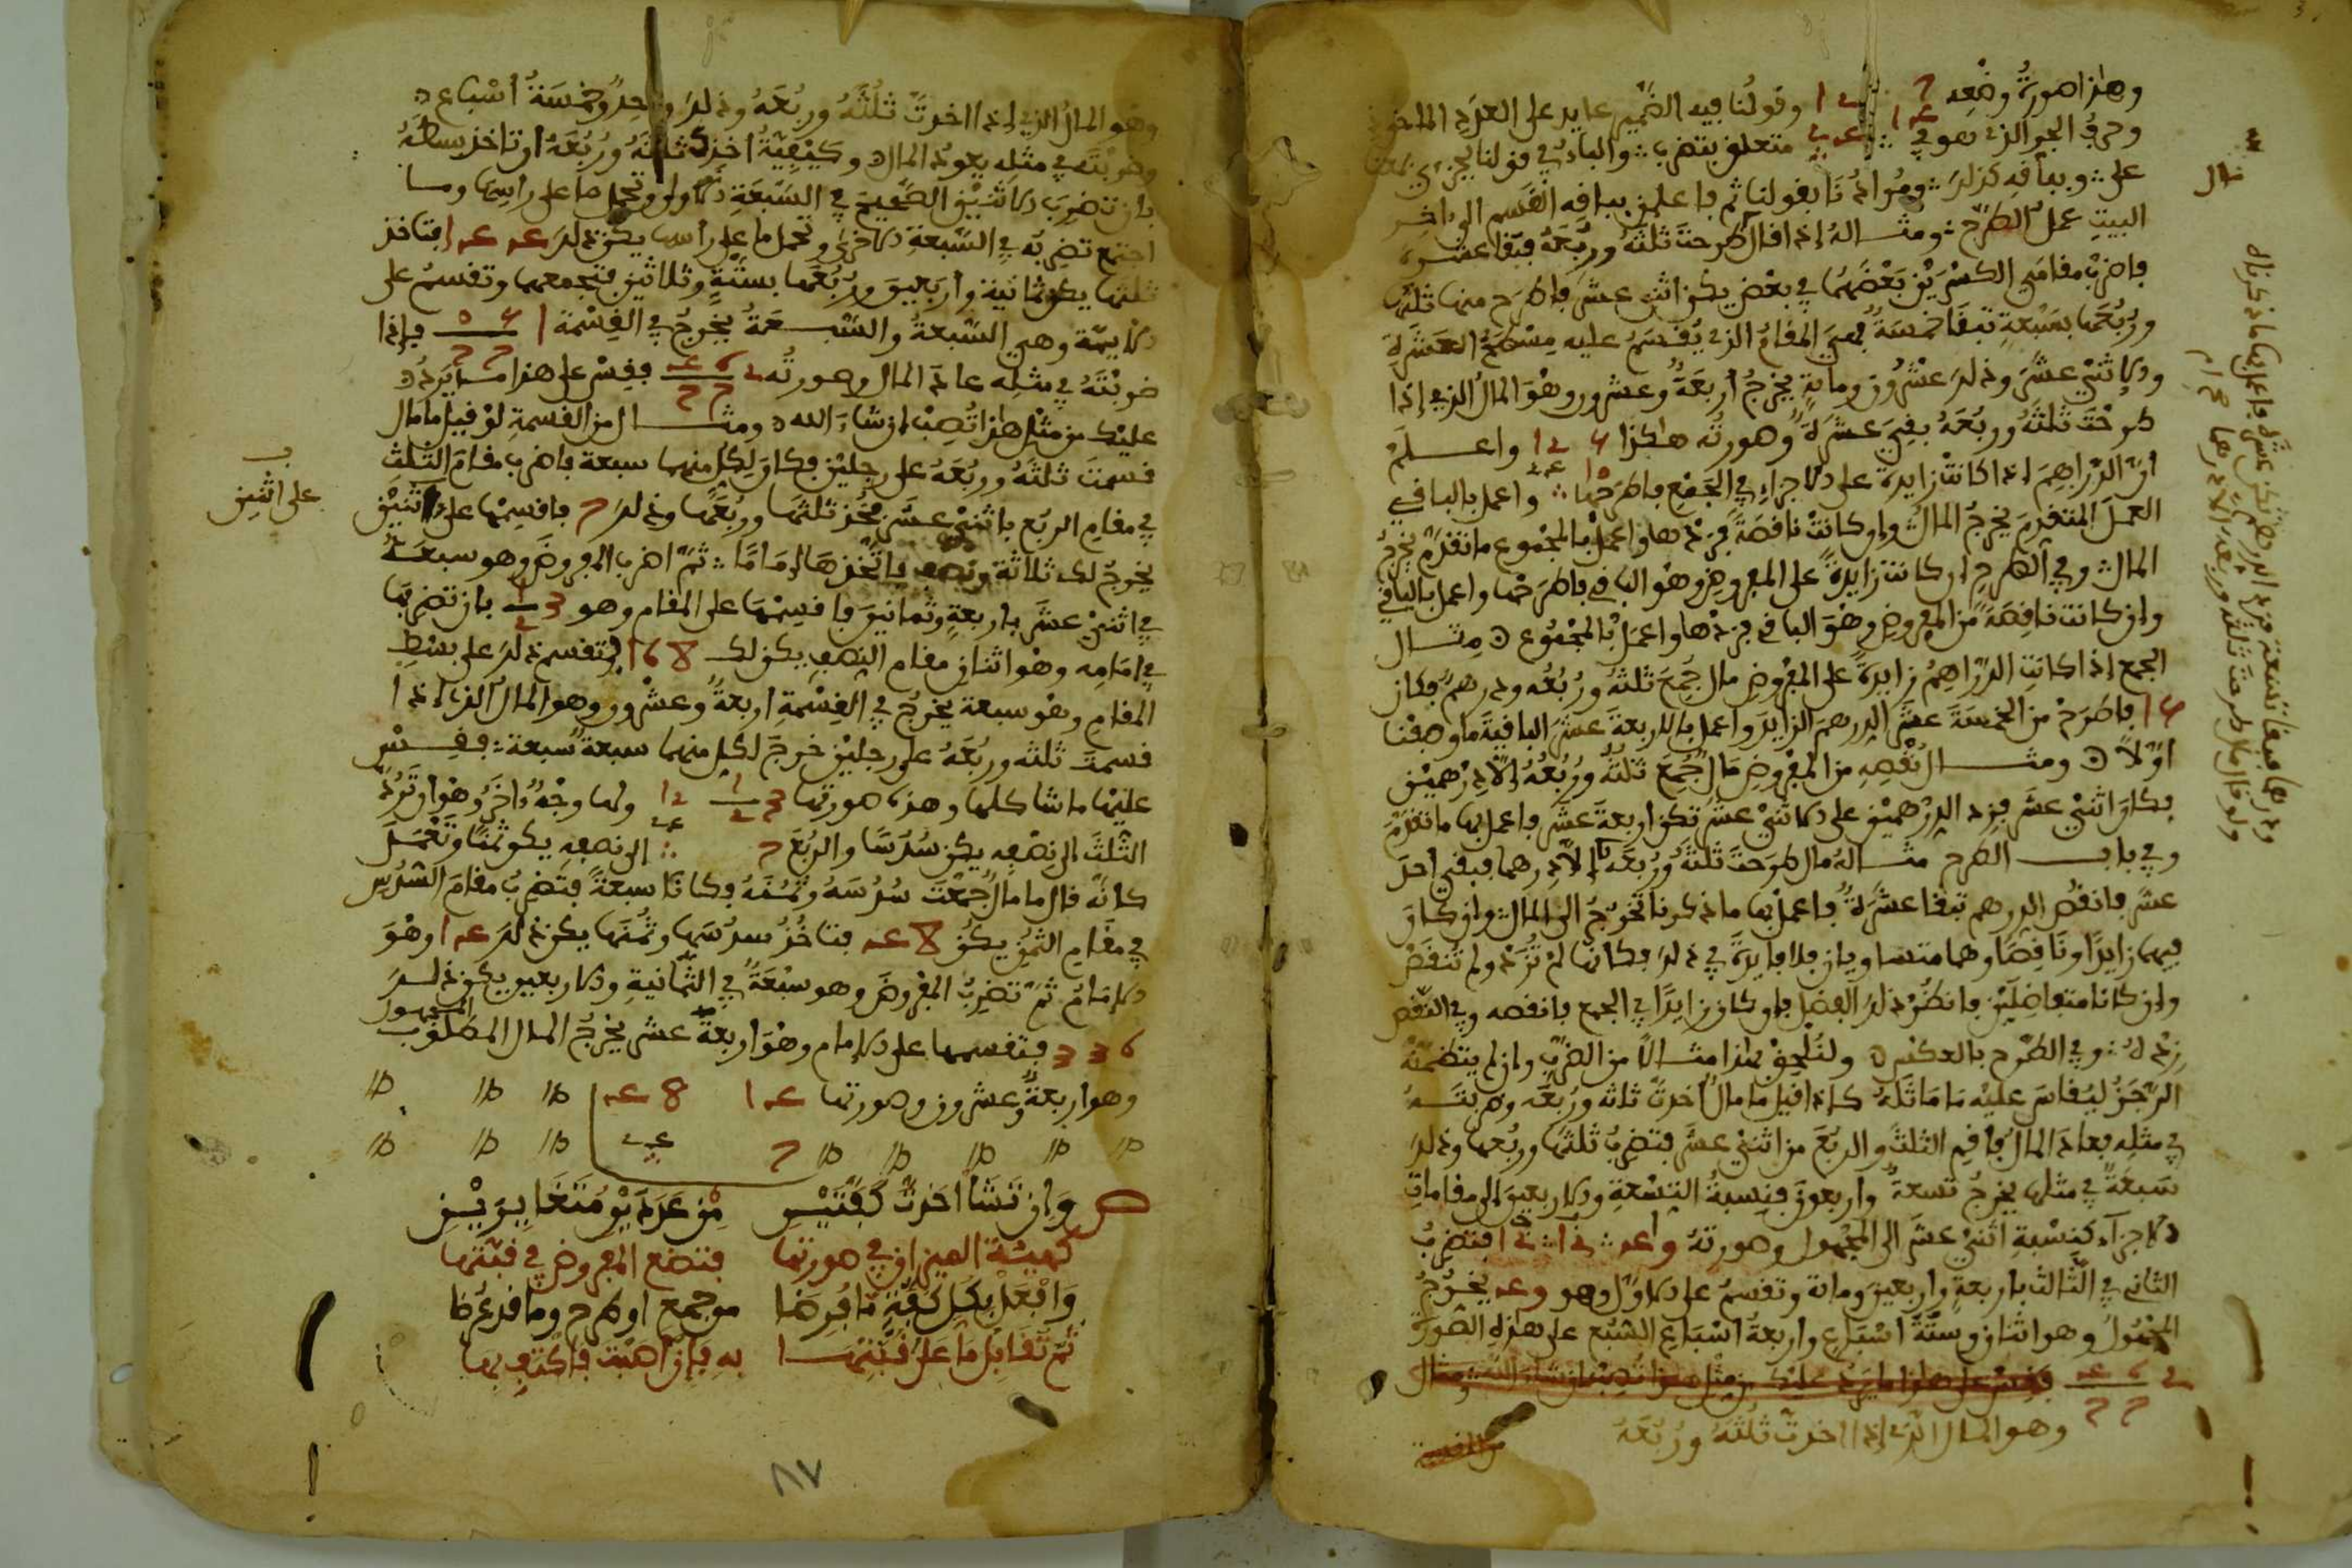 وهذا صورة وضعه 7 12 وقولنا فيه الضمير عايد على العدد الماخوذ
وحرف الجر الذي هو في متعلق بتضرب والباء في قولنا
على وباقيه كذلك ومرادنا بقولنا ثم باعلن بباقه القسم الى اخر
البيت عمل الطرح ومثاله إذا قال طرحت ثلثه وربعه فبقا عشرة
فاضرب مقامي الكسرين بعضهما في بعض يكن اثني عشر فاطرح منها ثلثها
وربعها بسبعة تبقا خمسة فهي المقام الذي يقسم عليه مسطح العشرة
والاثني عشر وذلك عشرون ومائة يخرج أربعة وعشرون وهو المال الذي إذا
طرحت ثلثه وربعه بقي عشرة وصورته هكذا 12 واعلم
أن الدراهم إذا كانت زايدة على الاجزاء في الجمع فاطرحها واعمل بالباقي
العمل المتقدم يخرج المال وإن كانت ناقصة فزدها واعمل بالمجموع ما تقدم يخرج
المال وفي الطرح إن كانت زايدة على المفروض وهو الباقي فاطرحها واعمل بالباقي
وإن كانت ناقصة من المفروض وهو الباقي فزدها واعمل بالمجموع مثال
الجمع إذا كانت الدراهم زايدة على المفروض مال جمع ثلثه وربعه ودرهم فكان
فاطرح من الخمسة عشر الدرهم الزايد واعمل بالاربعة عشر الباقية ما وصفنا
اولا ومثال نقصه من المفروض مال جمع ثلثه وربعه إلا درهمين
فكان اثني عشر فزد الدرهمين على الاثني عشر تكن اربعة عشر فاعمل بها ما تقدم
وفي باب الطرح مثاله مال طرحت ثلثه وربعه إلا درهما فبقي احد
عشر فانقص الدرهم تبقا عشرة فاعمل بها ما ذكرنا تخرج الى المال وإن كان
فيهما زايدا وناقصا وهما متساويان فلا فايدة في ذلك فكانها لم تزد ولم تنقص
وإن كانا متفاضلين فانظر ذلك الفضل فإن كان زايدا في الجمع فانقصه وفي النقص
زده وفي الطرح بالعكس ولنلحق بهذا مثالا من الضرب وإن لم يتضمنه
الرجز ليقاس عليه ما ماثله كإذا قيل ما مال أخذت ثلثه وربعه وضربته
في مثله فعاد المال فاقم الثلث والربع من اثني عشر فتضرب ثلثها وربعها وذلك
سبعة في مثلها يخرج تسعة وأربعون فنسبة التسعة والاربعين إلى مقامات
الاجزاء كنسبة اثني عشر الى المجهول وصورته فتضرب
الثاني في الثالث باربعة وأربعين ومائة وتقسم على الاول وهو يخرج
المجهول وهو اثنان وستة أسباع وأربعة أسباع السبع على هذه الصورة
فقس على هذا ما يرد عليك من مثل هذا تصب إن شاء الله ومثال
وهو المال الذي إذا اخذت ثلثه وربعه
من القسمة
ودرهما فبقا تسعة فزد الدرهم تكن عشرة فاعمل بها ما ذكرناه
ولو قال مال طرحت ثلثه وربعه
وهو المال الذي إذا اخذت ثلثه وربعه وذلك واحد وخمسة أسباع
وضربته في مثله يعود المال وكيفية اخذك ثلثه وربعه أن تاخذ بسطه
بان تضرب الاثنين الصحيح في السبعة الاولى وتحمل ما على راسها وما
اجتمع تضربه في السبعة الاخرى وتحمل ما على رأسها يكن ذلك فتاخذ
ثلثها يكن ثمانية وأربعين وربعها بستة وثلاثين فتجمعهما وتقسم على
الايمة وهي السبعة والسبعة يخرج في القسمة فإذا
ضربته في مثله عاد المال وصورته فقس على هذا ما يرد
عليك من مثل هذا تصب إن شاء الله ومثال من القسمة لو قيل ما مال
قسمت ثلثه وربعه على رجلين فكان لكل منهما سبعة فاضرب مقام الثلث
في مقام الربع باثني عشر فخذ ثلثها وربعها وذلك 7 فاقسمها على اثنين
يخرج لك ثلاثة ونصف فاتخذها إماما ثم اضرب المفروض وهو سبعة
في اثني عشر باربعة وثمانين فاقسمها على المقام وهو بان تضربها
في امامه وهو اثنان مقام النصف يكن لك 168 فتقسم ذلك على بسط
المقام وهو سبعة يخرج في القسمة اربعة وعشرون وهو المال الذي إذا
قسمت ثلثه وربعه على رجلين خرج لكل منهما سبعة سبعة فقس
عليها ما شاكلها وهذه صورتها 12 ولها وجه ءاخر وهو أن ترد
الثلث الى نصفه يكن سدسا والربع 7 الى نصفه يكن ثمنا وتعمل
كأنه قال ما مال جمعت سدسه وثمنه فكانا سبعة فتضرب مقام السدس
في مقام الثمن يكن فتاخذ سدسها وثمنها يكن ذلك وهو
الإمام ثم تضرب المفروض وهو سبعة في الثمانية والاربعين يكن ذلك
336 فتقسمها على الإمام وهو أربعة عشر يخرج المال المطلوب المجهول
وهو اربعة وعشرون وصورتها
على اثنين
ص وإن تشأ اخذت كفتين من عددين متغايرين
كهيئة الميزان في صورتها فتضع المفروض في قبتها
وافعل بكل كفة ما فرضا من جمع او طرح وما قد عرضا
ثم تقابل ما على قبتها به فإن أصبت فاكتف بها
٨٧